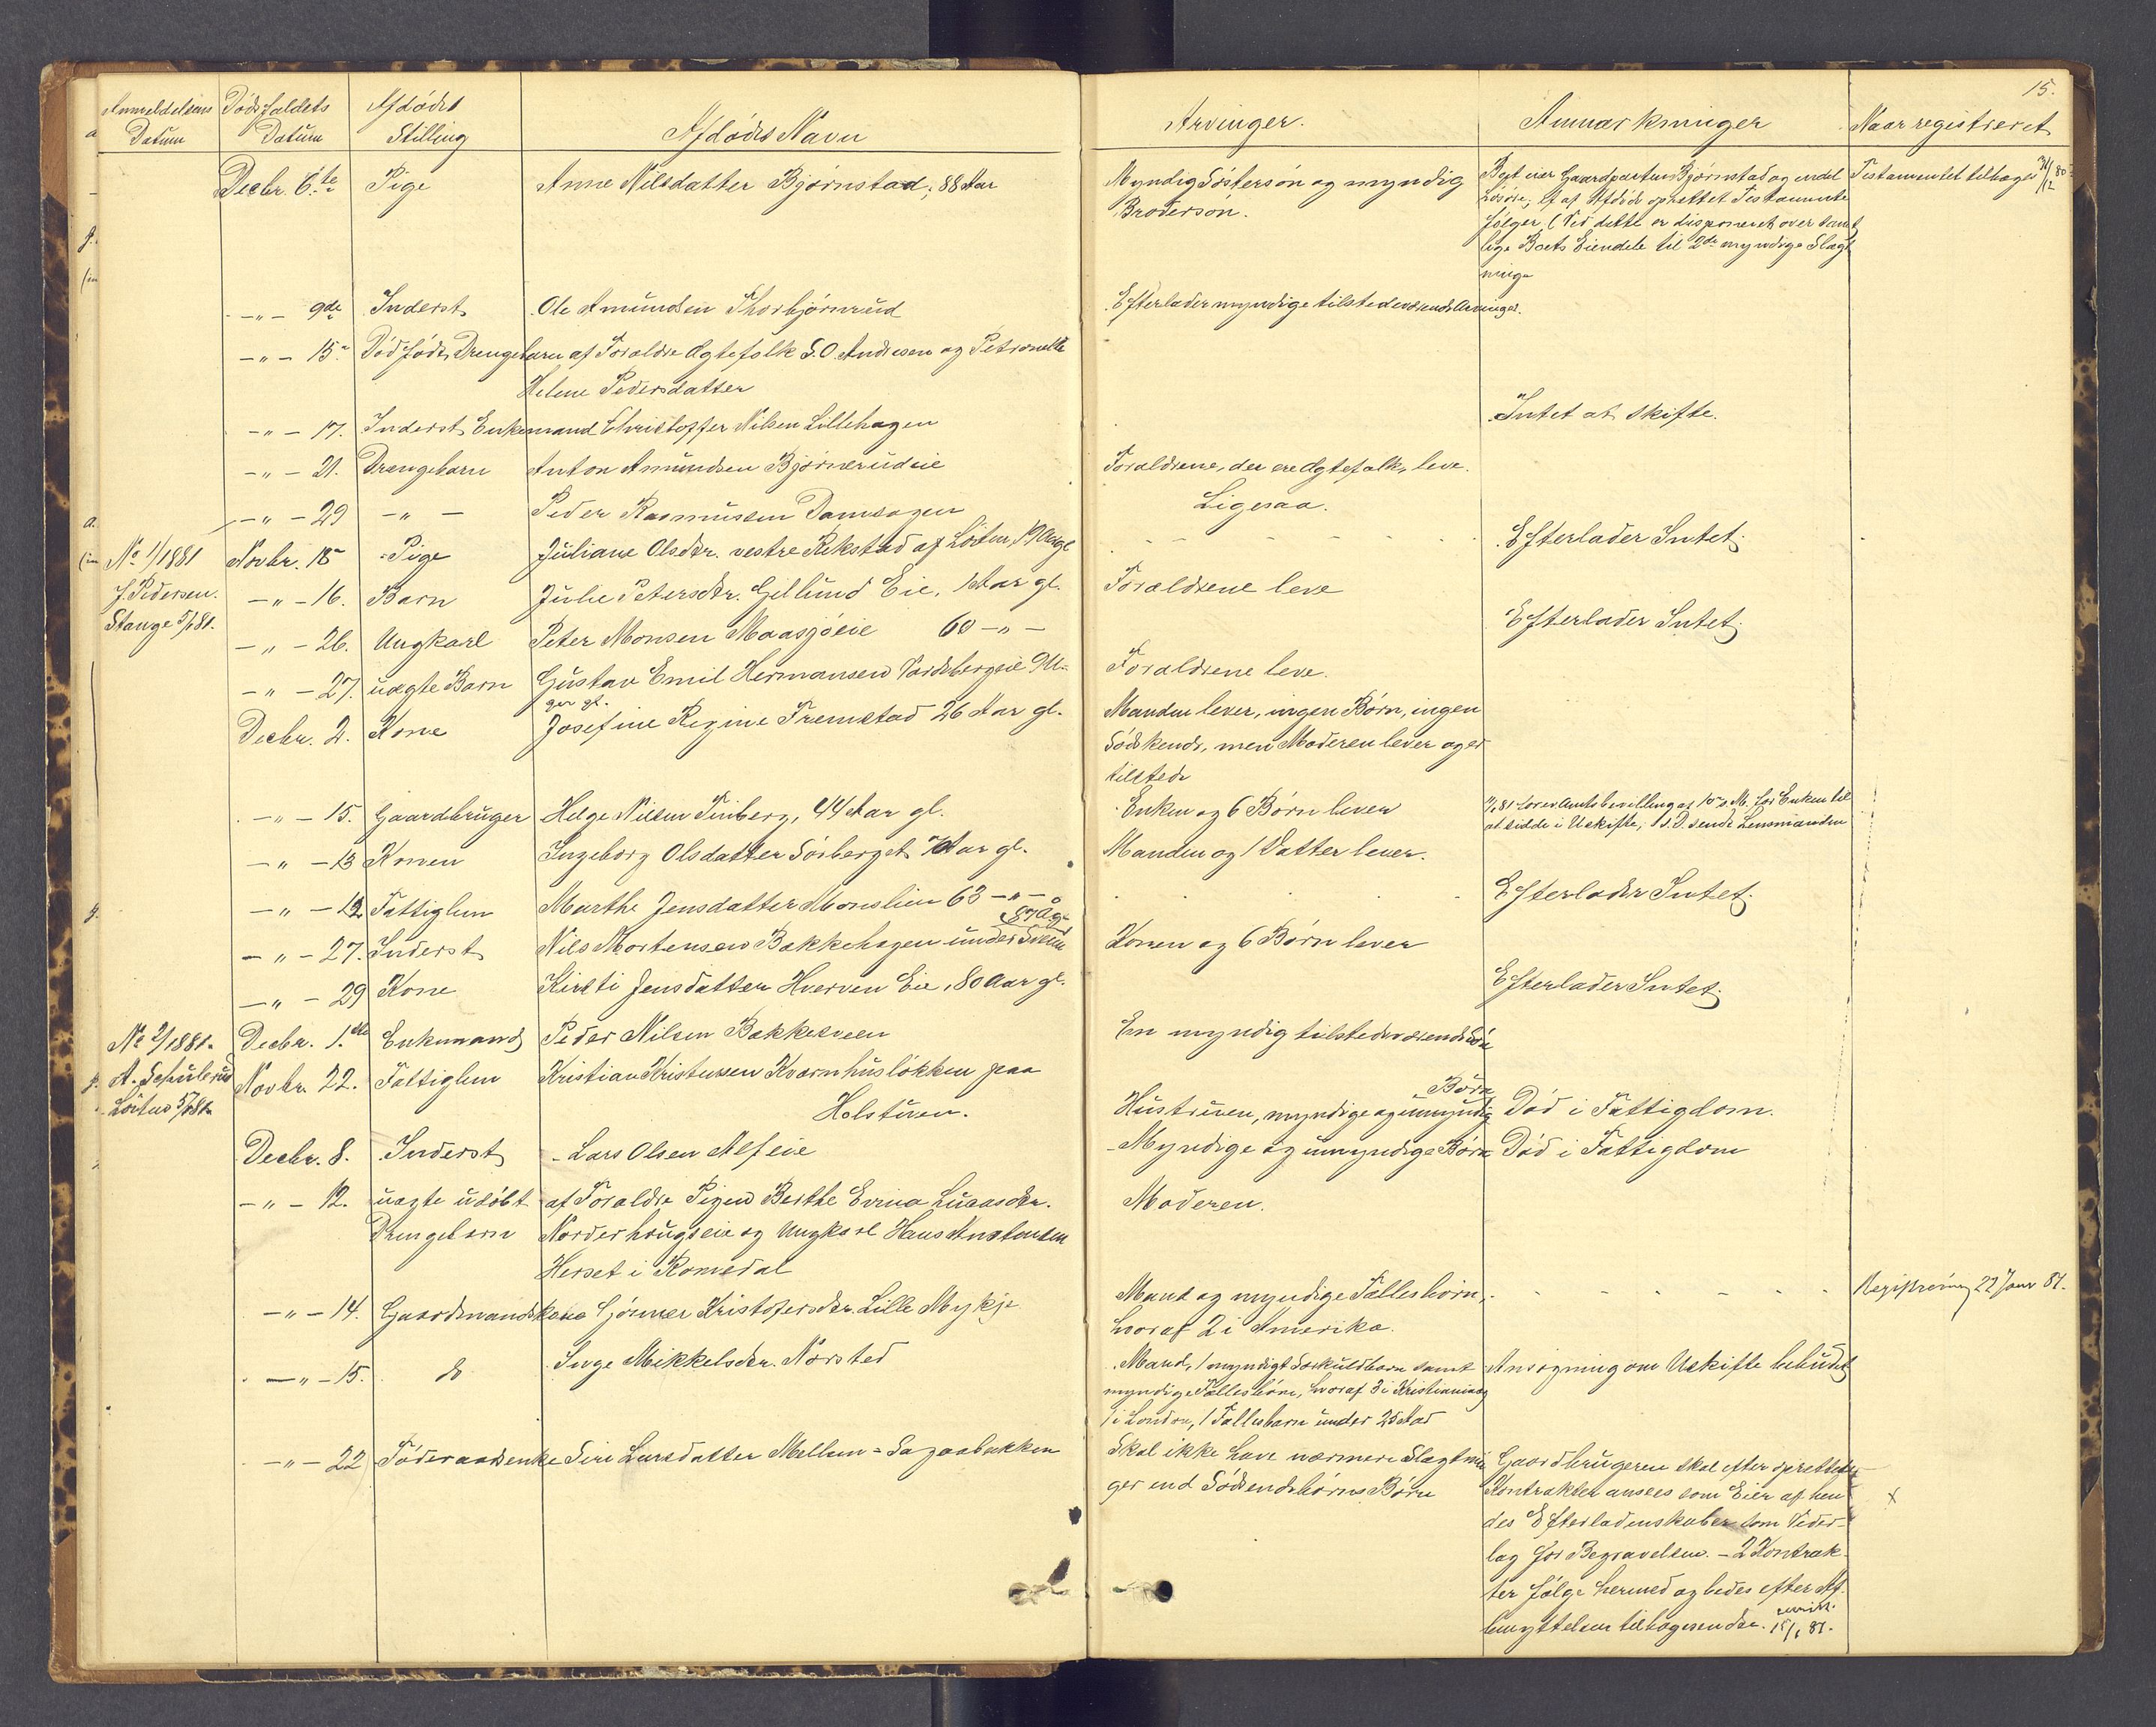 15.
Anmeldelsens Datum
Dødsfaldets Datum
Afdødes Stilling
Afdødes Navn
Arvinger.
Anmærkninger
Naar registreret
Decbr. 6te Pige Anne Nilsdatter Bjørnstad, 88 Aar
Myndig Søstersøn og myndig
Brodersøn.
Boet eier Gaardparten Bjørnstad og endel
Løsøre; et af Afdøde oprettet Testamente
følger (Ved dette er disponeret over samt
lige Boets Eiendele til 2de myndige Slægt
ninge
Testamentet tilbages 31/12 80
-"- 9de Inderst Ole Amundsen Thorbjørnrud
Efterlader myndige tilstedeværende Arvinger.
-"- 15. Dødfødt Drengebarn af Forældre Ægtefolk S. O. Andresen og Petronelle
Helene Pedersdatter
-"- 17. Inderst Enkemand Christoffer Nilsen Lillehagen
Intet at skifte.
-"- 21. Drengebarn Anton Amundsen Bjørnerudeie
Forældrene, der ere Ægtefolk, leve.
-"- 29 -"- Peder Rasmussen Damsagen
Ligesaa.
No 1/1881 Novbr. 18 Pige Juliane Olsdtr. vestre Rekstad af Løiten, 19 Aar gl
Efterlader Intet.
J. Pedersen. -"- 16. Barn Julie Petersdtr. Gillund Eie, 1 Aar gl.
Forældrene leve
Stange 5/1 81. -"- 26. Ungkarl Peter Monsen Maasjøeie 60 -"-
Efterlader Intet.
-"- 27. uægte Barn Gustav Emil Hermansen Vardebergeie 9 U=
ger gl.
Forældrene leve.
Decbr. 2. Kone Josefine Regine Fremstad 26 Aar gl.
Manden lever, ingen Børn, ingen
Sødskende, men Moderen lever og er
tilstede
-"- 15. Gaardbruger Helge Nilsen Finberg, 44 Aar gl.
Enken og 6 Børn lever
at sidde i Uskifte; s. D. sendt Lensmanden
-"- 13 Konen Ingeborg Olsdatter Sørberget Aar gl.
Manden og 1 Datter lever.
-"- 12 Fattiglem Marthe Jensdatter Monslien 63 -"-
Efterlader Intet.
-"- 27. Inderst Nils Mortensen Bakkehagen under Sveen
Konen og 6 Børn lever
-"- 29 Kone Kirsti Jensdatter Hverven Eie, 80 Aar gl.
Efterlader Intet.
No 2/1881. Decbr. 1ste Enkemand Peder Nilsen Bakkesveen
En myndig tilstedeværende Søn
A. Schulerud Novbr. 22. Fattiglem Kristian Kristensen Kværnhusløkken paa
Løiten 5/1 81. Holstuen.
Hustruen, myndige og umyndig Børn
Død i Fattigdom.
Decbr. 8. Inderst Lars Olsen Alfeie
Myndige og umyndige Børn
Død i Fattigdom
-"- 12. uægte udøbt af Forældre Pigen Berthe Evina Lucasdtr.
Drengebarn Norderhaugseie og Ungkarl Hans Anstensen
Herset i Romedal
Moderen.
-"- 14. Gaardmandskone Gjønner Kristofersdtr. Lille Mykje
Mand og myndige Fællesbørn,
hvoraf 2 i Amerika.
Registrering 22 Janr 81.
-"- 15. do Inge Mikkelsdtr. Norsted
Mand, 1 myndigt Særkuldbarn samt
myndige Fællesbørn, hvoraf 3 i Kristiania og
1 i London, 1 Fællesbarn under 25 Aar
Ansøgning om Uskifte bebudet
-"- 22 Føderaadsenke Siri Larsdatter Mellem=Sagaabakken
Skal ikke have nærmere Slægtnin
ger end Sødskendebørns Børn
Gaardbrugeren skal efter oprettede
Kontrakter ansees som Eier af hen
des Efterladenskaber som Veder-
lag for Begravelsen. - 2 Kontrak
ter følge hermed og bedes efter Af-
benyttelsen tilbagesendte. remitt. 15/1 81.
x